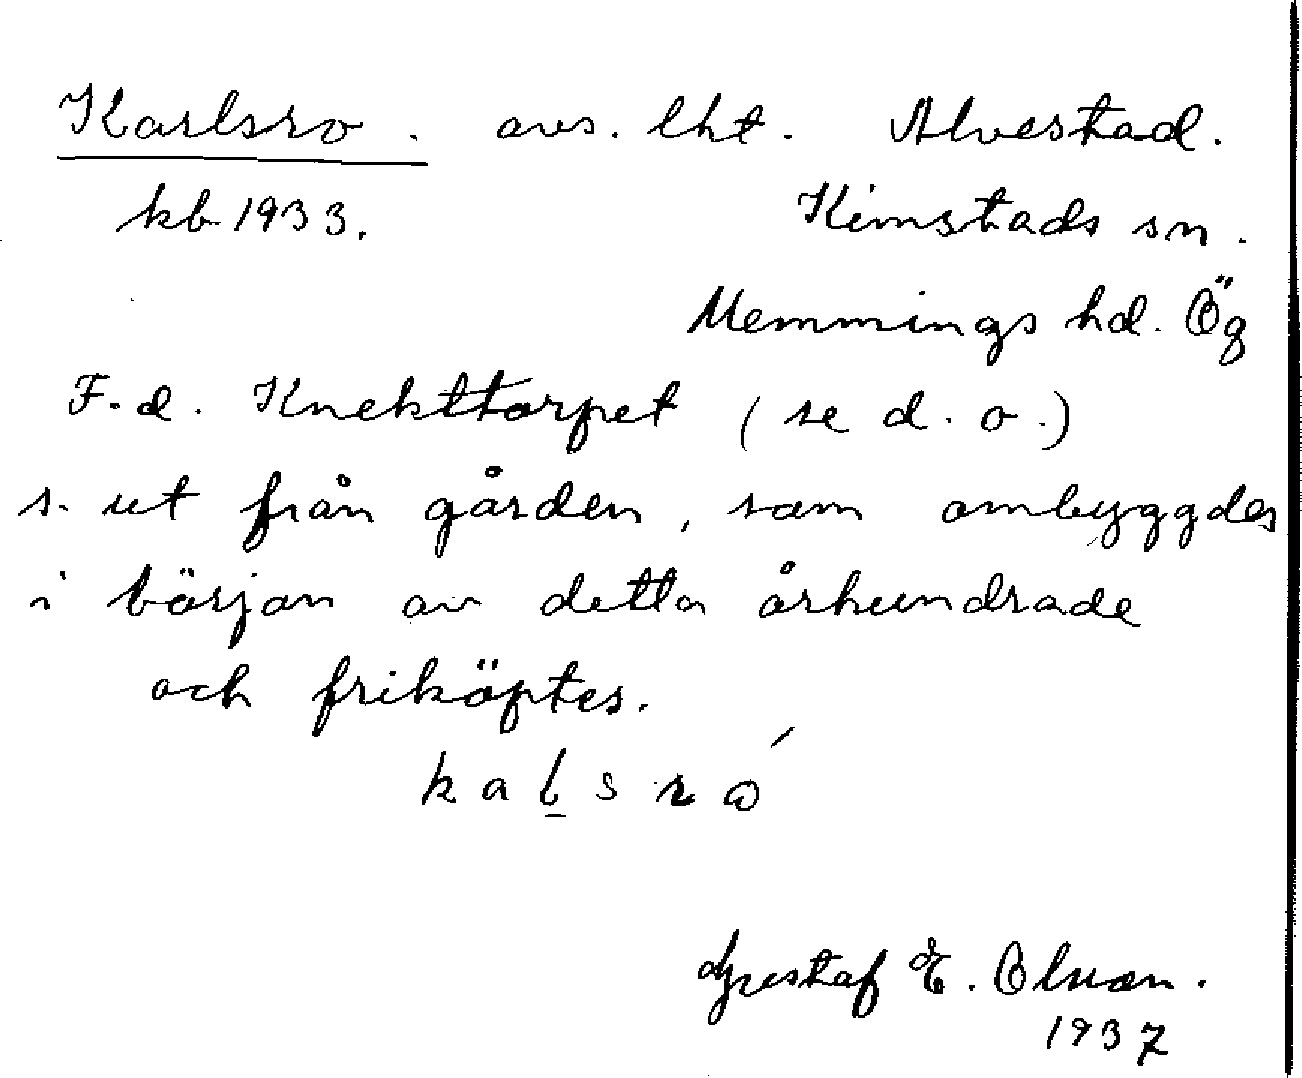 Karlsro. avs. lht. Alvestad.
kb 1933. Kimstads sn.
Memmings hd. Ög
F.d. Knekttorpet (se d.o.)
s. ut från gården, som ombyggdes
i början av detta århundrade
och friköptes.
kalsró
Gustaf E. Olsson.
1937